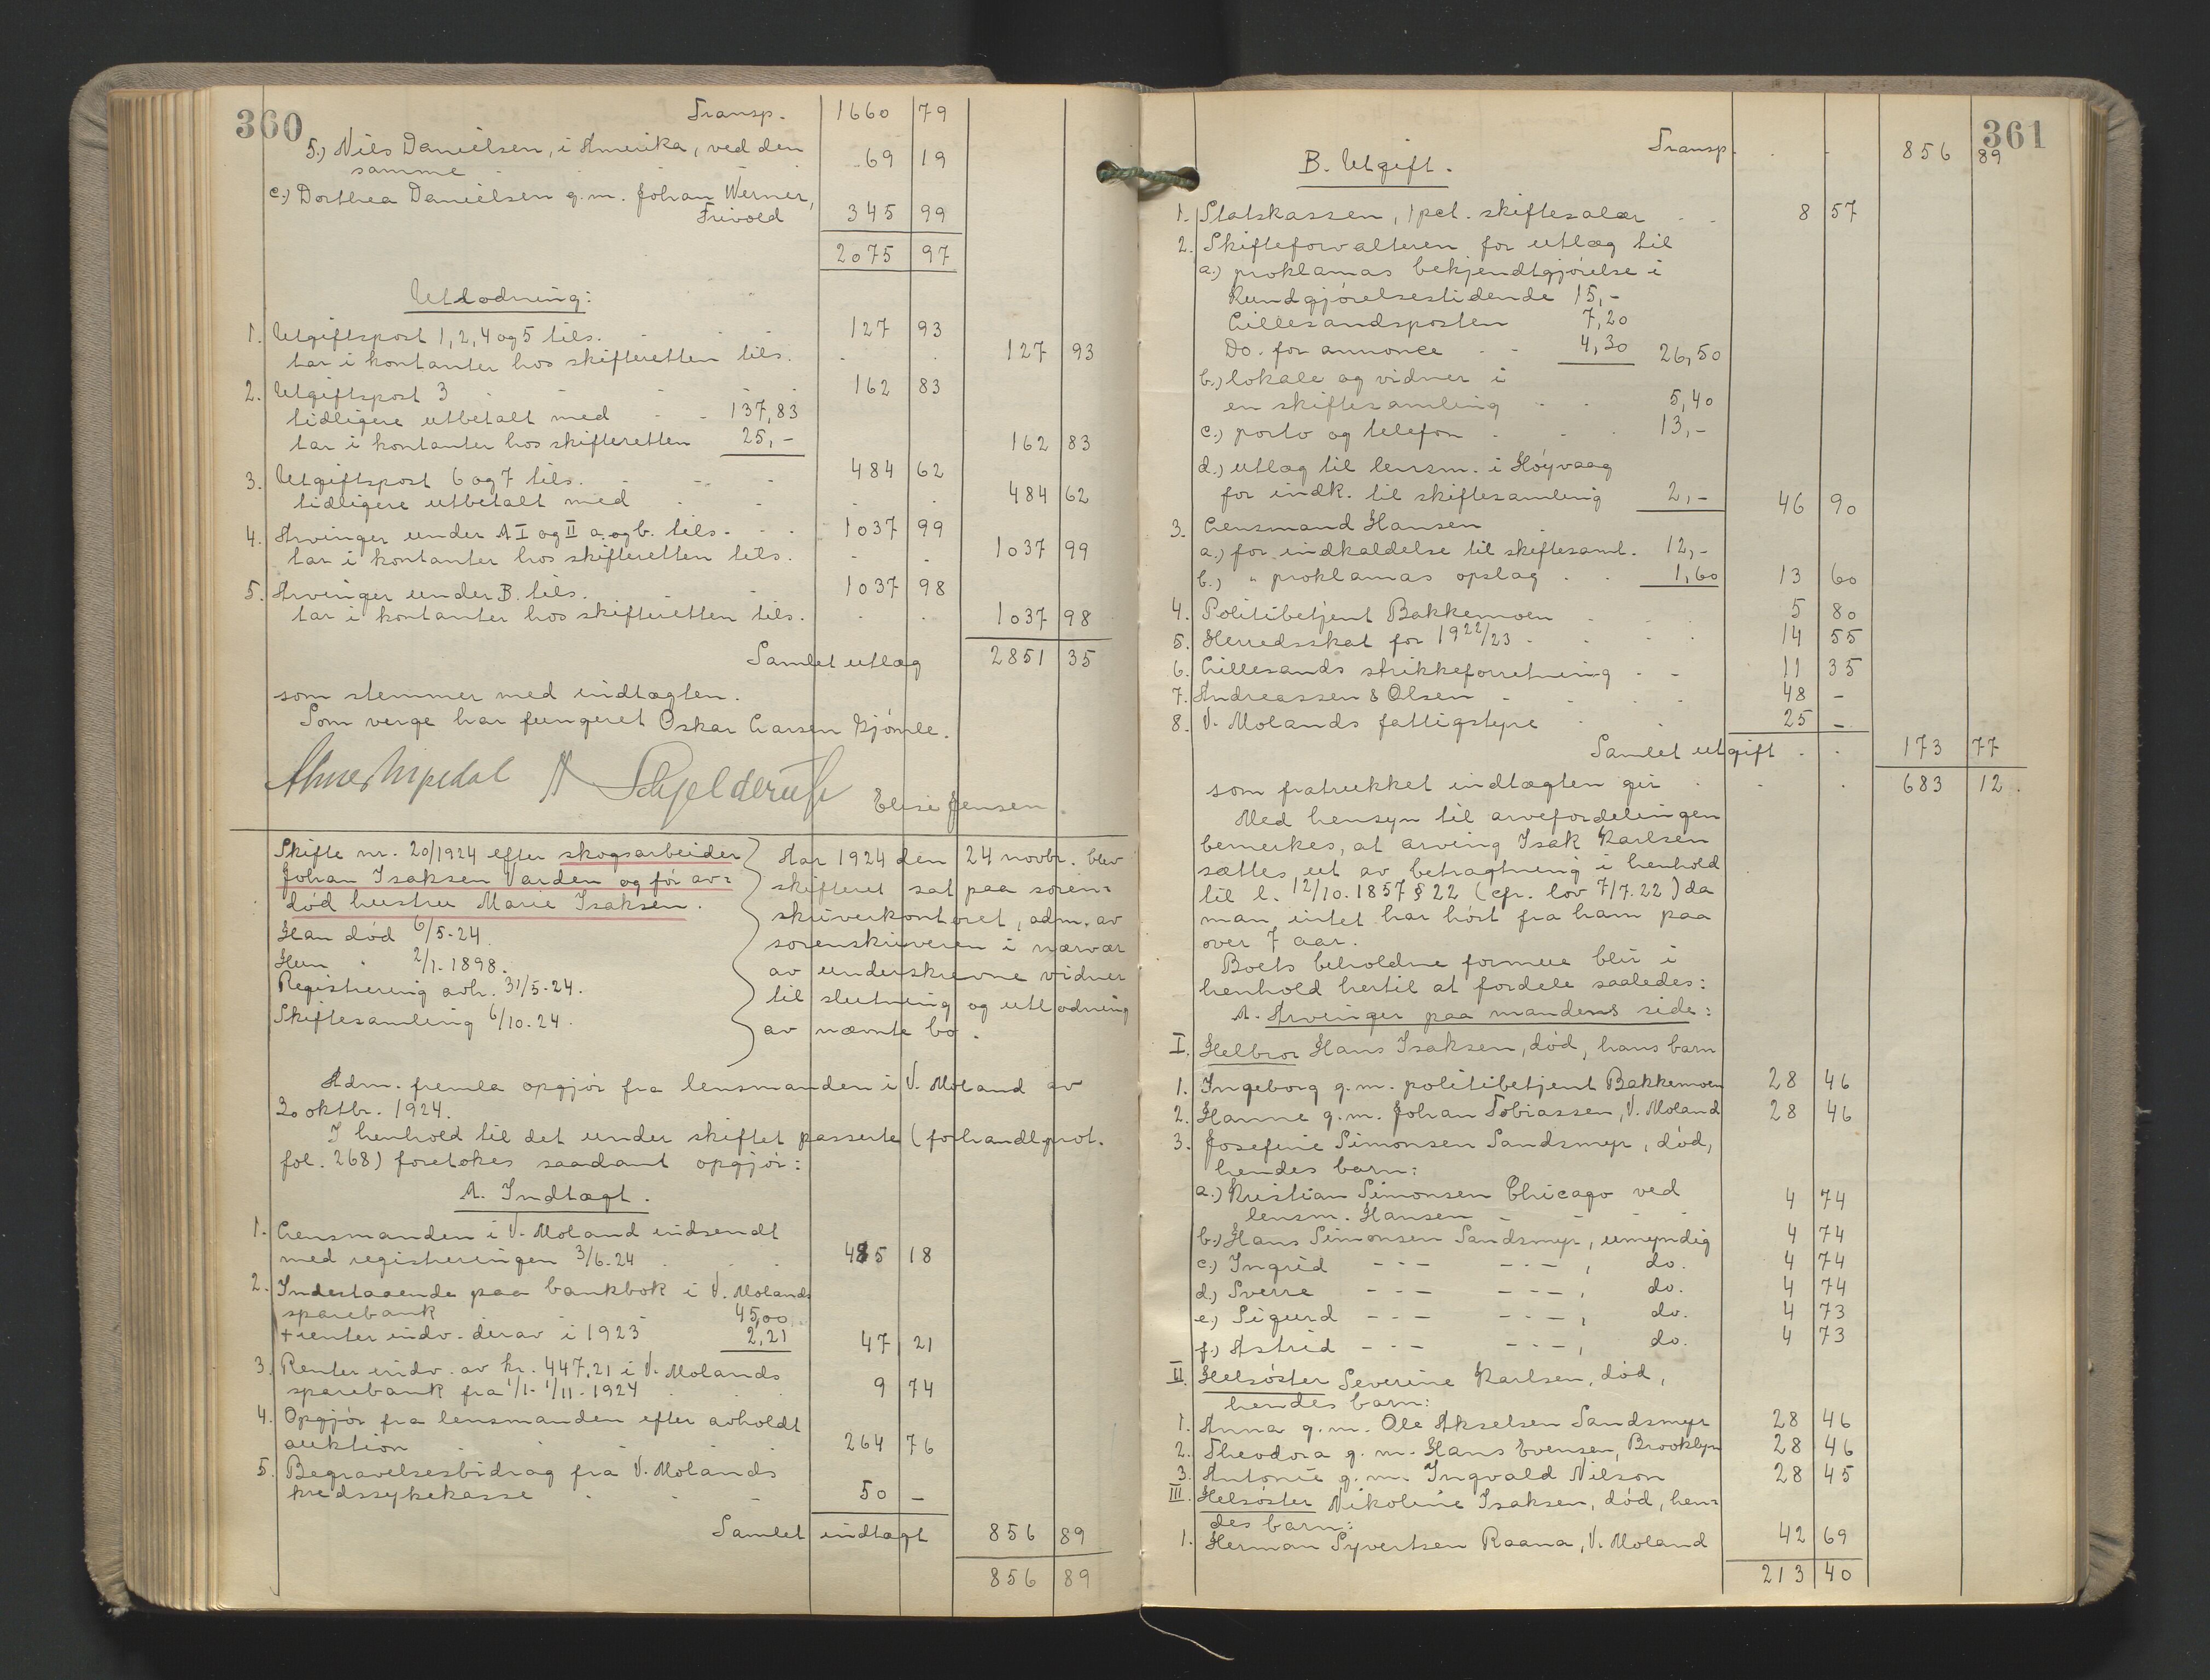 360
Transp. 1660 79
5.) Niels Danielsen, i Amerika, ved den
samme 69 19
c.) Dorthea Danielsen g.m. Johan Werner,
Trivold 345 99
2075 97
Utlodning:
1. Utgiftspost 1, 2, 4 og 5 tils. 127 93
tar i kontanter hos skifteretten tils. 127 93
2. Utgiftspost 3 162 83
tidligere utbetalt med 137,83
tar i kontanter hos skifteretten 25,- 162 83
3. Utgiftspost 6 og 7 tils. 484 62
tidligere utbetalt med 484 62
4. Arvinger under A I og II a. og b. tils. 1037 99
tar i kontanter hos skifteretten tils. 1037 99
5. Arvinger under B. tils. 1037 98
tar i kontanter hos skifteretten tils. 1037 98
Samlet utlæg 2851 35
som stemmer med indtægten.
Som verge har fungeret Oskar Larsen Kjömle.
Schjelderup Elise Jensen
Skifte nr. 20/1924 efter skogsarbeider
Johan Isaksen Varden og før av=
död hustru Marie Isaksen.
Han död 6/5-24.
Hun " 2/1-1898.
Registrering avh. 31/5-24.
Skiftesamling 6/10-24.
Aar 1924 den 24 novbr. blev
skifteret sat paa soren=
skriverkontoret, adm. av
sorenskriveren i nærvær
av underskrevne vidner
til slutning og utlodning
av nævnte bo.
Adm. fremla opgjör fra lensmanden i V. Moland av
30 oktbr. 1924.
I henhold til det under skiftet passerte (forhandl.prot.
fol. 268) foretokes saadant opgjör:
A. Indtægt.
1. Lensmanden i V. Moland indsendt
med registreringen 3/6-24 485 18
2. Indestaaende paa bankbok i V. Molands
sparebank 45,00
+ renter indv. derav i 1923 2,21 47 21
3. Renter indv. av kr. 447,21 i V. Molands
sparebank fra 1/1-1/11-1924 9 74
4. Opgjör fra lensmanden efter avholdt
auktion 264 76
5. Begravelsesbidrag fra V. Molands
kredssykekasse 50 -
Samlet indtægt 856 89
856 89
361
Transp. 856 89
B. Utgift.
1. Statskassen, 1 pct. skiftesalær 8 57
2. Skifteforvalteren for utlæg til
a.) proklamas bekjendtgjörelse i
Kundgjörelsestidende 15,-
Lillesandsposten 7,20
Do. for annonce 4,30 26,50
b.) lokale og vidner i
en skiftesamling 5,40
c.) porto og telefon 13,-
d.) utlæg til lensm. i Höyvaag
for indk. til skiftesamling 2,- 46 90
3. Lensmand Hansen
a.) for indkaldelse til skiftesaml. 12,-
b.) " proklamas opslag 1,60 13 60
4. Politibetjent Bakkemoen 5 80
5. Herredsskat for 1922/23 14 55
6. Lillesands strikkeforretning 11 35
7. Andreassen & Olsen 48 -
8. V. Molands fattigstyre 25 -
Samlet utgift 173 77
som fratrukket indtægten gir 683 12.
Med hensyn til arvefordelingen
bemerkes, at arving Isak Karlsen
sættes ut av betragtning i henhold
til l. 12/10.1857 § 22 (cfr. lov 7/7.22) da
man intet har hört fra ham paa
over 7 aar.
Boets beholdne formue blir i
henhold hertil at fordele saaledes:
A. Arvinger paa mandens side:
I. Helbror Hans Isaksen, död, hans barn
1. Ingeborg g.m. politibetjent Bakkemoen 28 46
2. Hanne g.m. Johan Tobiassen, V. Moland 28 46
3. Josefine Simonsen Sandsmyr, död,
hendes barn:
a.) Kristian Simonsen Chicago ved
lensm. Hansen 4 74
b.) Hans Simonsen Sandsmyr, umyndig 4 74
c.) Ingrid --- ---, do. 4 74
d.) Sverre --- ---, do. 4 74
e.) Sigurd --- ---, do. 4 73
f.) Astrid --- ---, do. 4 73
II. Helsöster Severine Karlsen, död,
hendes barn:
1. Anna g.m. Ole Akselsen Sandsmyr 28 46
2. Theodora g.m. Hans Evensen, Brooklyn 28 46
3. Antonie g.m. Ingvald Nilson 28 45
III. Helsöster Nikoline Isaksen, död, hen=
des barn:
1. Herman Syvertsen Raana, V. Moland 42 69
213 40